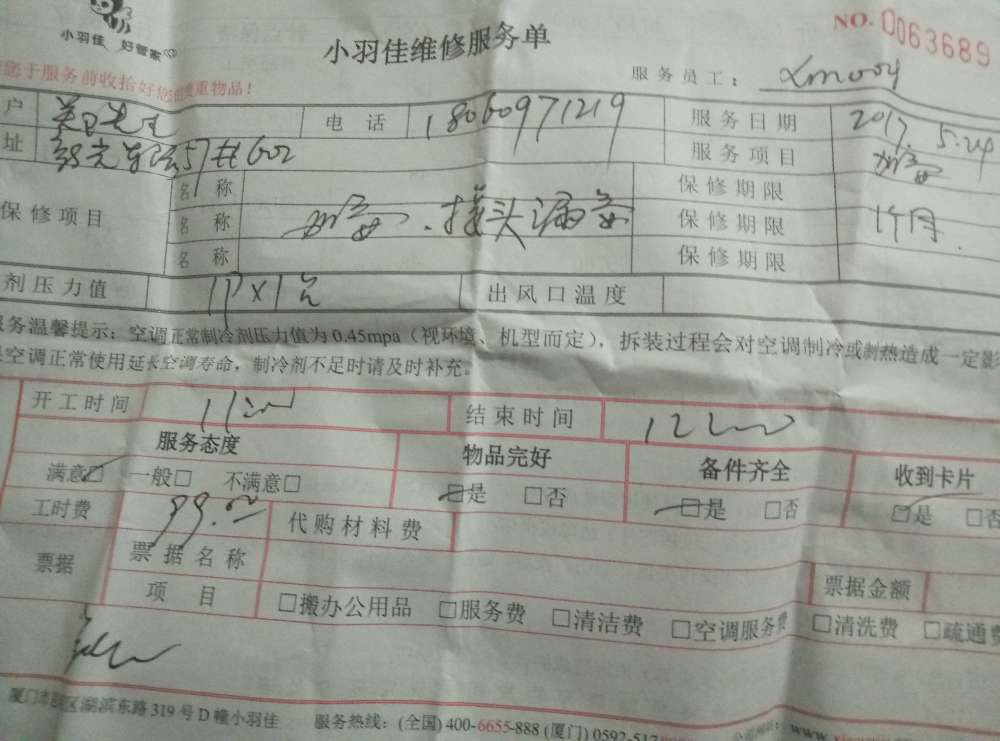 小羽佳 好管家
小羽佳维修服务单
NO. 0063689
您于服务前收拾好您的贵重物品！
服务员工： Xm004
户 先生 电话 18060971219 服务日期 2017. 5.24
址 57# 602 服务项目 加氟
名称 保修期限
保修项目 名称 加氟、接头漏氟 保修期限 1个月.
名称 保修期限
剂压力值 1P×1台 出风口温度
服务温馨提示：空调正常制冷剂压力值为 0.45mpa（视环境、机型而定），拆装过程会对空调制冷或制热造成一定影
空调正常使用延长空调寿命，制冷剂不足时请及时补充。
开工时间 结束时间
服务态度 物品完好 备件齐全 收到卡片
满意□ 一般□ 不满意□ □是 □否 □是 □否 □是 □否
工时费 99.00 代购材料费
票据 票据名称 票据金额
项目 □搬办公用品 □服务费 □清洁费 □空调服务费 □清洗费 □疏通费
厦门市 区湖滨东路 319 号 D 幢小羽佳 服务热线：(全国) 400-6655-888 (厦门) 0592-517